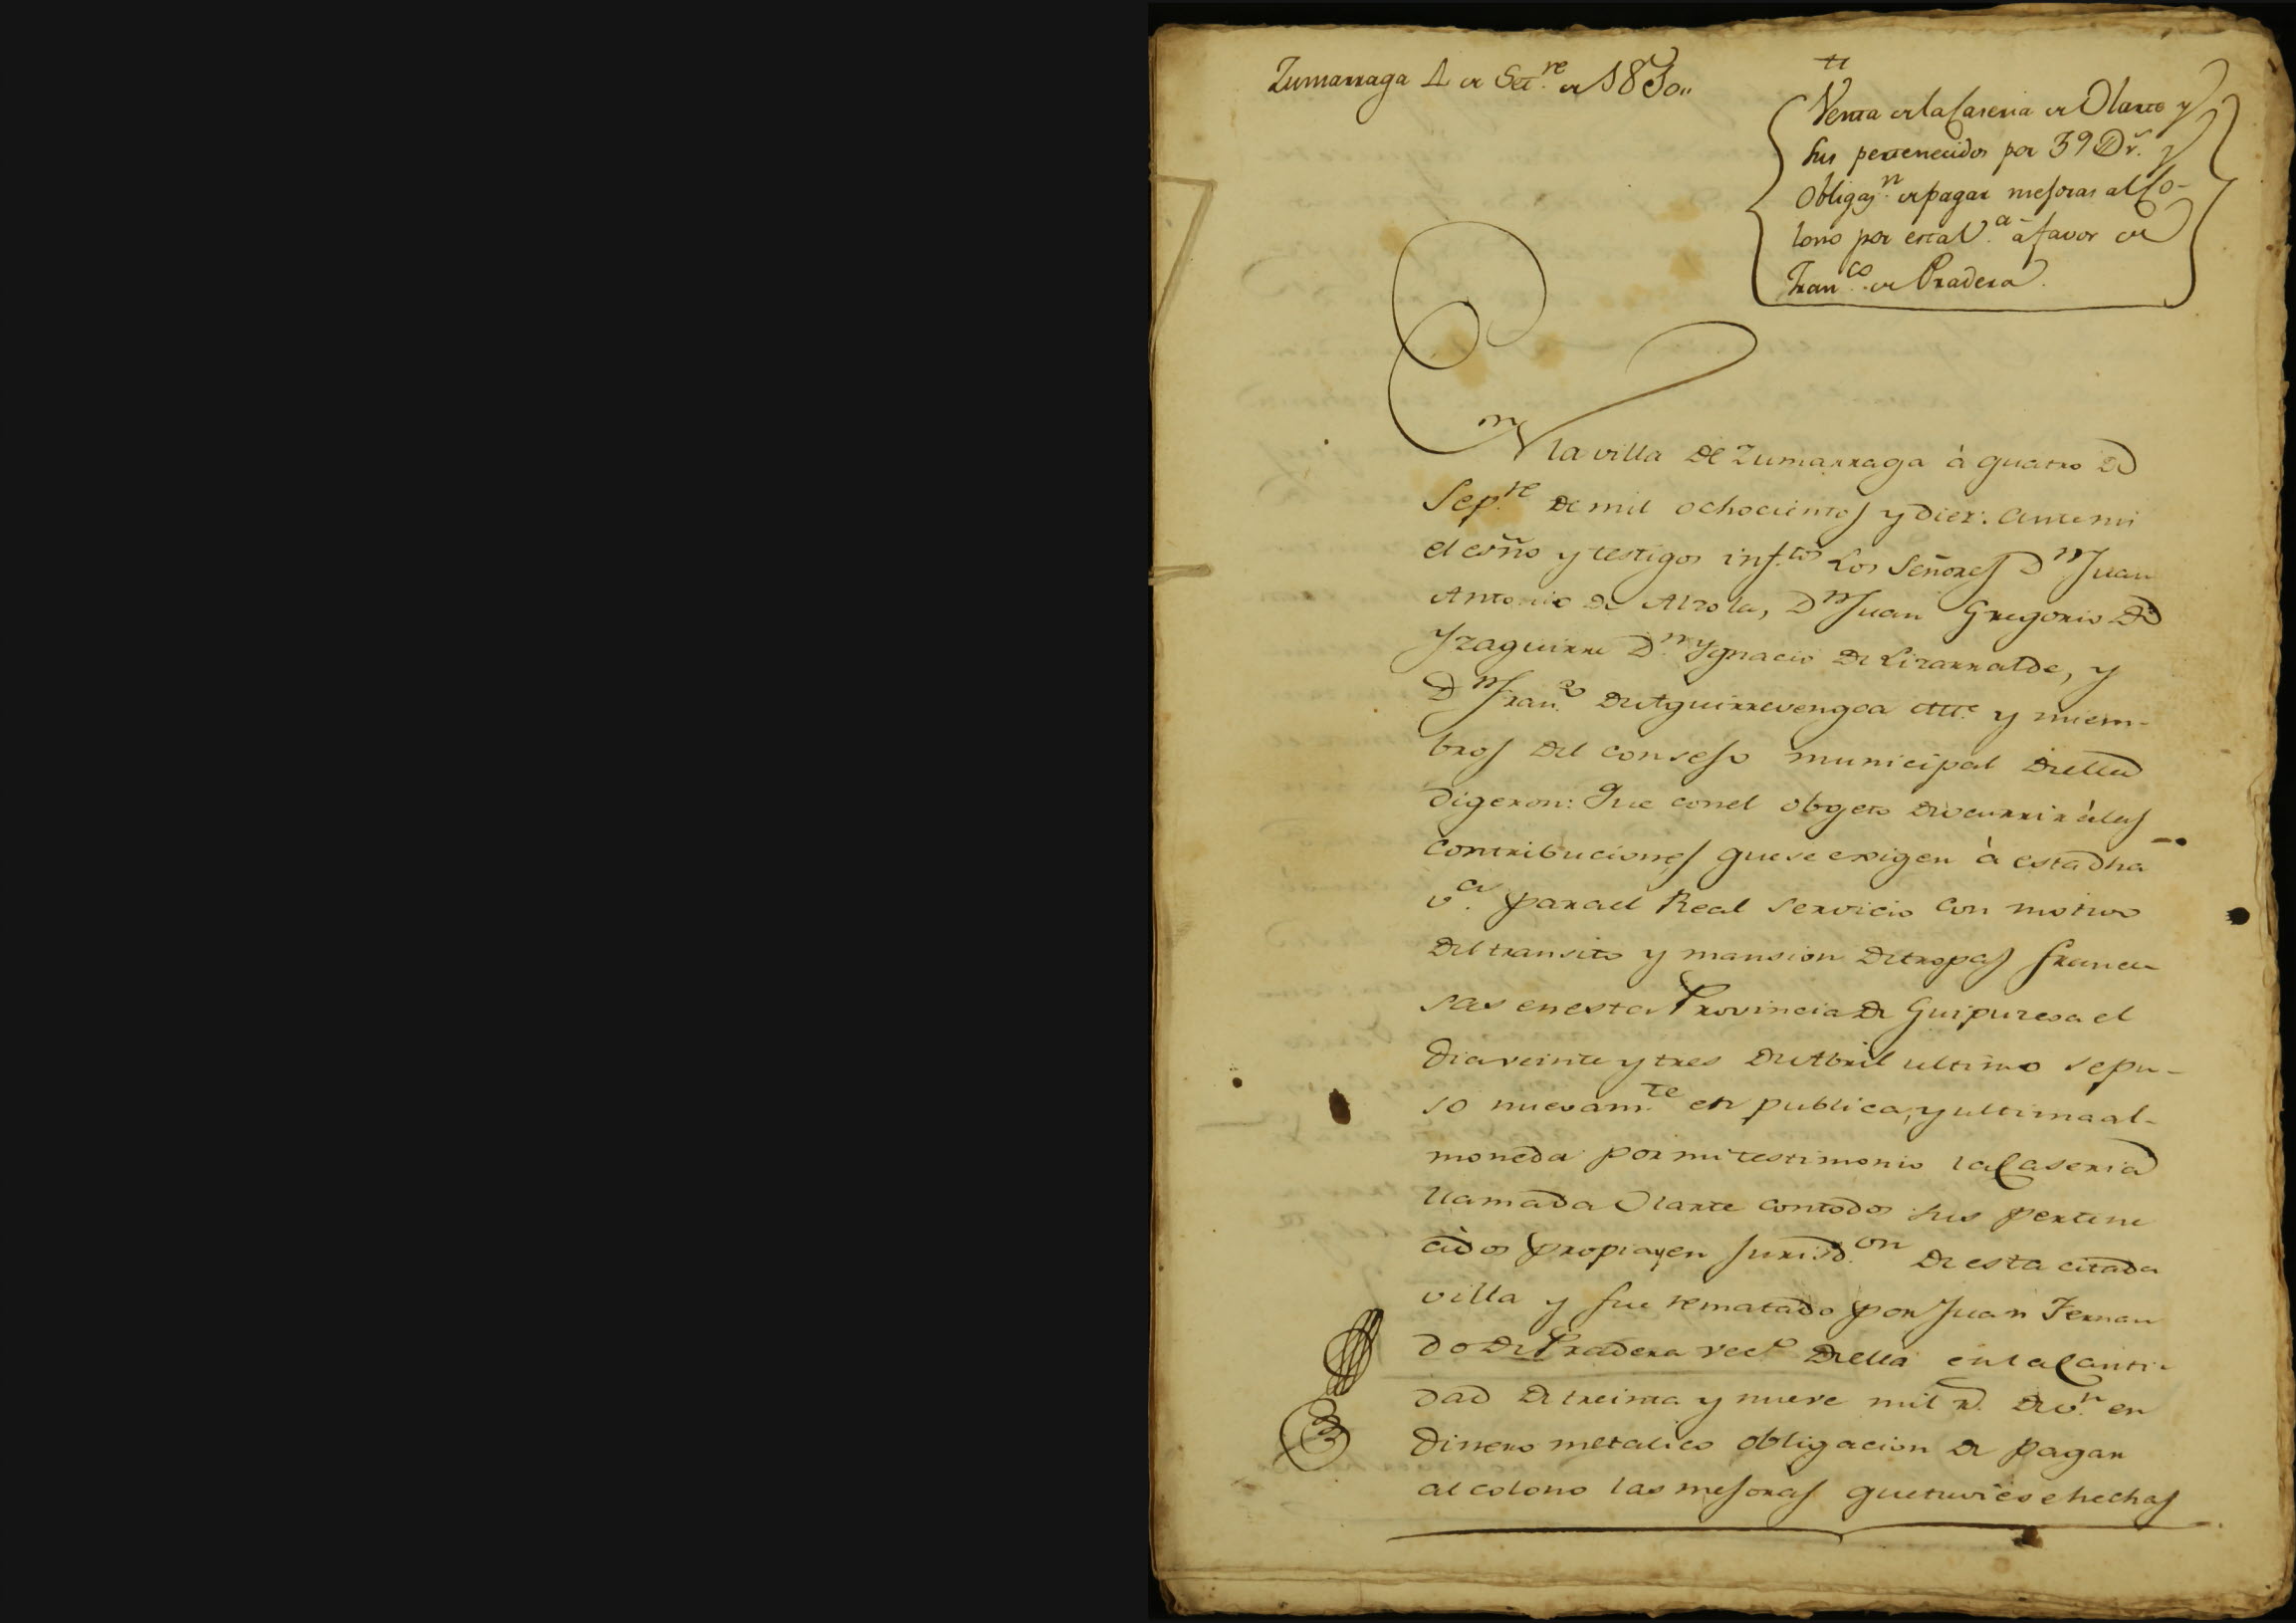 Zumarraga 4 de Set.re de 1830.,
Venta de la Caseria de Olarte y
sus pertenecidos por 39 D r.s y
Obligaz.n de pagar mejoras al Co-
lono por esta V.a à favor de
Fran.co de Pradera.
En la villa de Zumarraga à quatro de
Sep.re de mil ochocientos y diez: Ante mi
el esño y testigos inf.tos Los Señores D.n Juan
Antonio de Alzola, D.n Juan Gregorio de
Yzaguirre D.n Ygnacio de Lizarralde, y
D.n Fran.co de Aguirrevengoa Alc.e y miem-
bros del consejo municipal de ella
digeron: Que con el obgeto de ocurrir à las
contribuciones que se exigen à esta dha
v.a para el Real servicio con motivo
del transito y mansion de tropas france
sas en esta Provincia de Guipuzcoa el
dia veinte y tres de Abril ultimo se pu-
so nuevam.te en publica, y ultima al-
moneda por mi testimonio la Caseria
llamada Olarte con todos sus pertene
cidos propia, y en Jurisd.on de esta citada
villa y fue rematado por Juan Fernan
do de Pradera vec.o de ella en la Canti-
dad de treinta y nueve mil r.s de v.n en
dinero metalico obligacion de pagar
al colono las mejoras que tuviese hechas